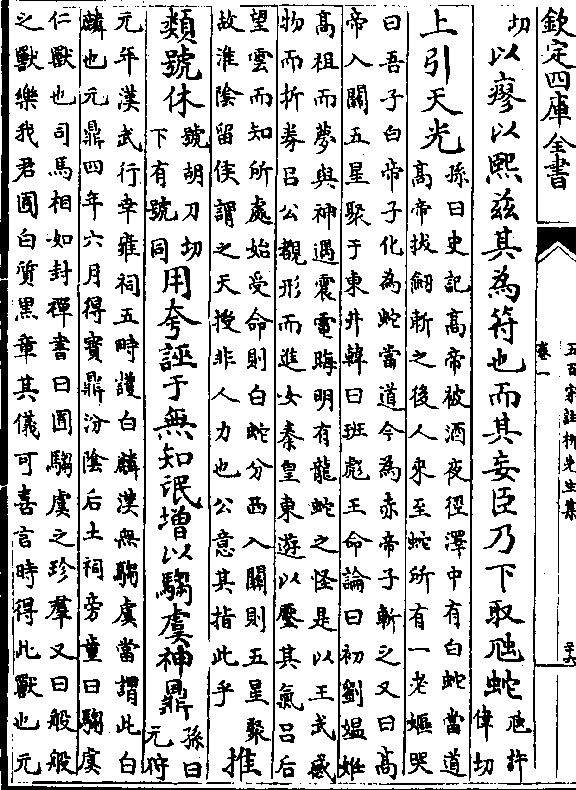 欽定四庫全書
五百家註柳先生集
卷一
切以瘳以熙茲其為符也而其妄臣乃下取虺蛇虺許偉切
上引天光孫曰史記高帝被酒夜徑澤中有白蛇當道
高帝拔劒斬之後人來至蛇所有一老嫗哭
曰吾子白帝子化為蛇當道今為赤帝子斬之又曰高
帝入關五星聚于東井韓曰班彪王命論曰初劉媼姙
高祖而夢與神遇震電晦明有龍蛇之怪是以王武感
物而折券呂公覩形而進女秦皇東遊以壓其氣呂后
望雲而知所處始受命則白蛇分西入關則五星聚
故淮陰留侯謂之天授非人力也公意其指此乎推
類號休號胡刀切下有號同用夸誣于無知氓增以騶虞神鼎孫曰元狩
元年漢武行幸雍祠五時獲白麟漢無騶虞當謂此白
麟也元鼎四年六月得寶鼎汾陰后土祠旁童曰騶虞
仁獸也司馬相如封禪書曰囿騶虞之珍羣又曰般般
之獸樂我君囿白質黑章其儀可喜言時得此獸也元